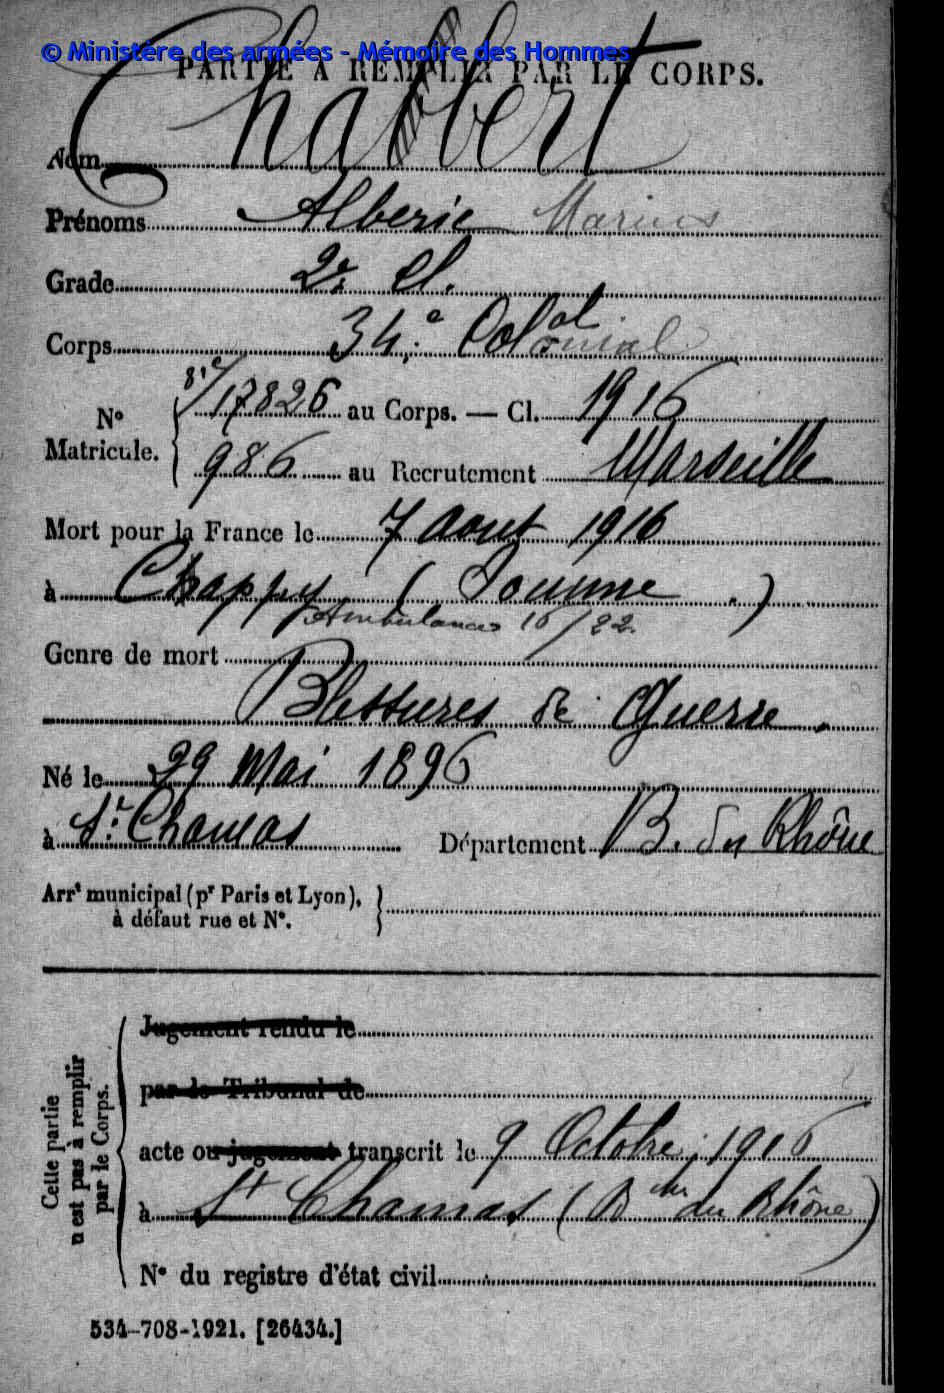 © Ministère des armées - Mémoire des Hommes
PARTIE À REMPLIR PAR LE CORPS.
Nom Chabert
Prénoms Alberic Marius
Grade 2e Cl.
Corps 34.e Colal onial
N° Matricule. 81e/17826 au Corps. — Cl. 1916
986 au Recrutement Marseille
Mort pour la France le 7 Aout 1916
à Chappy (Somme.)
Ambulances 16/22.
Genre de mort
Blessures de Guerre.
Né le 29 Mai 1896
à St. Chamas Département B. du Rhône
Arrt municipal (pr Paris et Lyon),
à défaut rue et N°.
Cette partie
n'est pas à remplir
par le Corps.
Jugement rendu le
par le Tribunal de
acte ou jugement transcrit le 9 Octobre 1916
à St Chamas (Bches du Rhône)
N° du registre d'état civil
534-708-1921. [26434.]